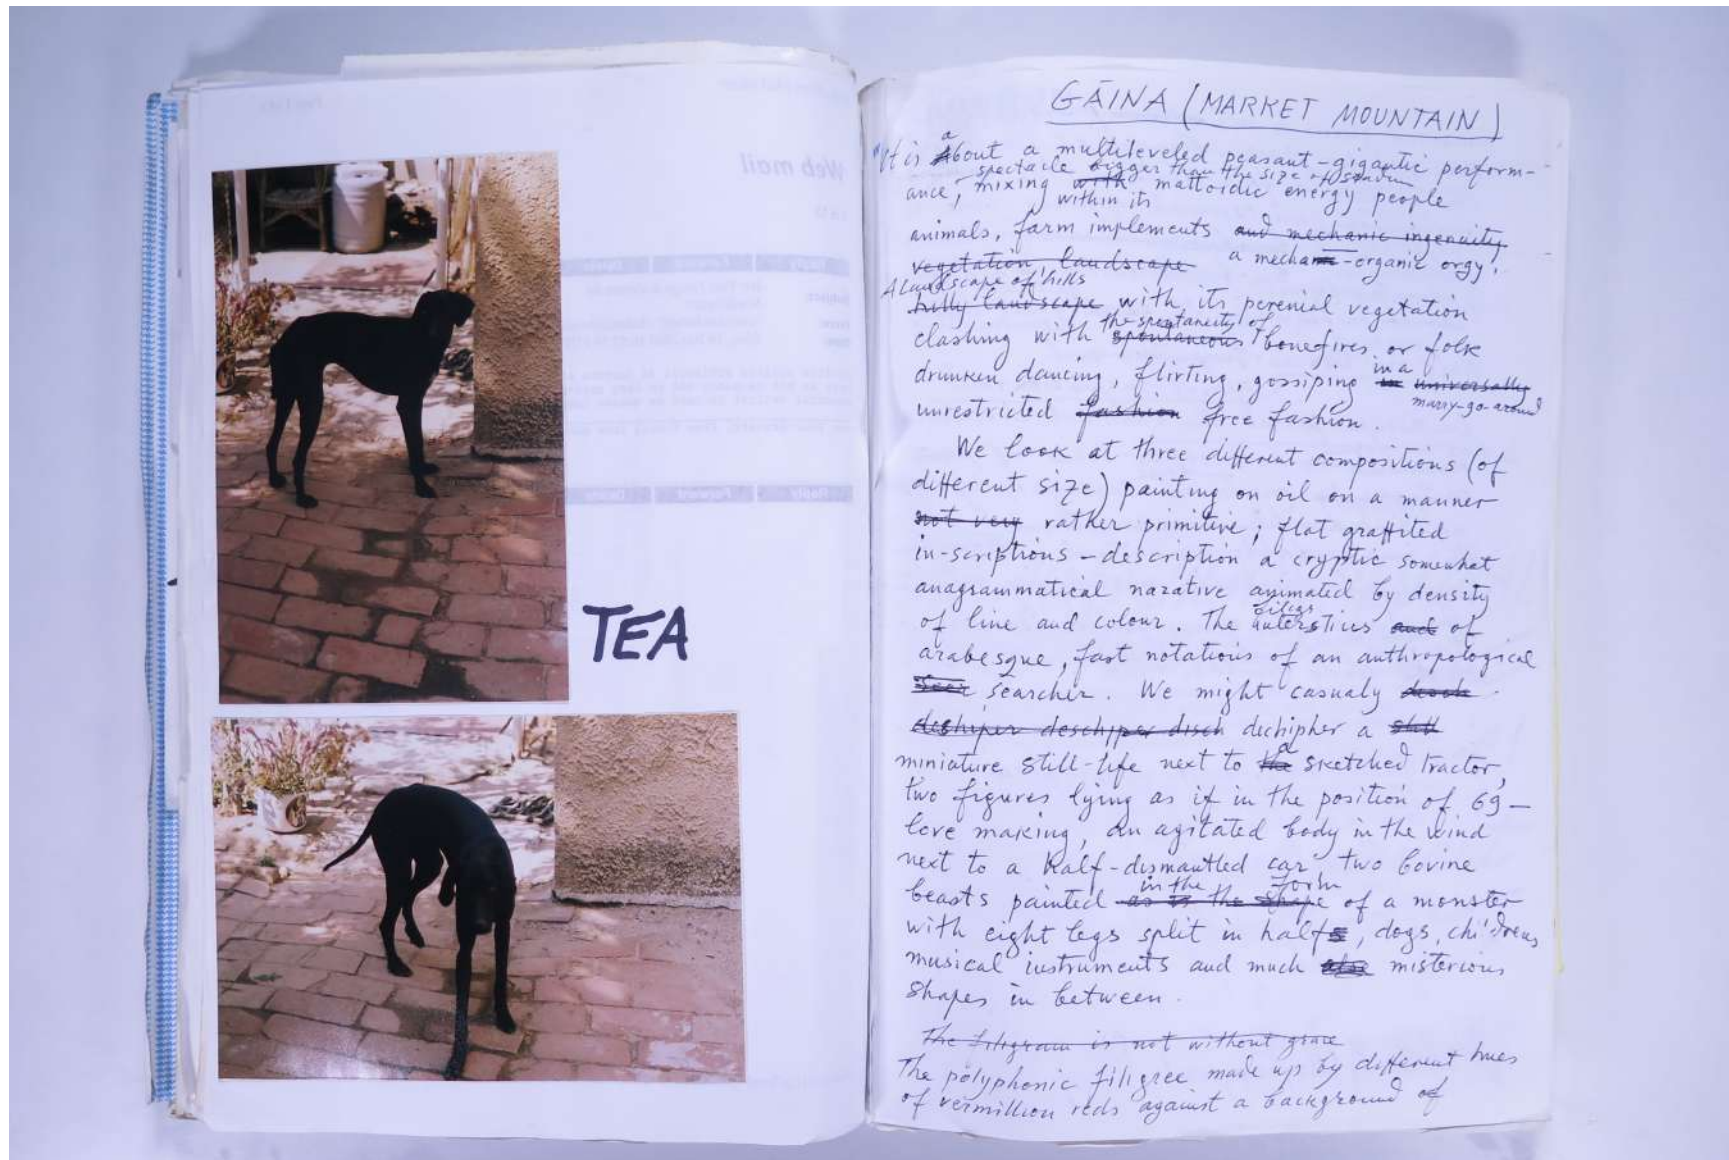 TEA
GĂINA (MARKET MOUNTAIN)
It is about a multileveled peasant-gigantic perform-
spectacle bigger than the size of
ance, mixing with mattoidic energy people
within its
animals, farm implements and mechanic ingenuity
vegetation, landscape a mecha-organic orgy.
A landscape of hills
hilly landscape with its perenial vegetation
the spontaneity of
clashing with spontaneous bonefires or folk
drunken dancing, flirting, gossiping in universally
in a
marry-go-around
unrestricted fashion free fashion.
We look at three different compositions (of
different size) painting on oil on a manner
not very rather primitive; flat graffited
in-scriptions - description a cryptic somewhat
anagrammatical narative animated by density
of line and colour. The of
arabesque, fast notations of an anthropological
searcher. We might casualy
deschiper dechipher a still
a
miniature still-life next to the sketched tractor,
two figures lying as if in the position of 69 -
love making, an agitated body in the wind
next to a half-dismantled car two bovine
in the form
beasts painted as in the shape of a monster
with eight legs split in halfs, dogs, childrens
musical instruments and much also misterious
shapes in between.
The filigram is not without grace
The polyphonic filigree made up by different hues
of vermillion reds against a background of
Web mail